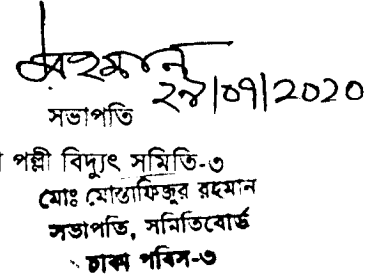 রহমান
২৮/০৭/2020
সভাপতি
পল্লী বিদ্যুৎ সমিতি-৩
মোঃ মোস্তাফিজুর রহমান
সভাপতি, সমিতিবোর্ড
ঢাকা পবিস-৩